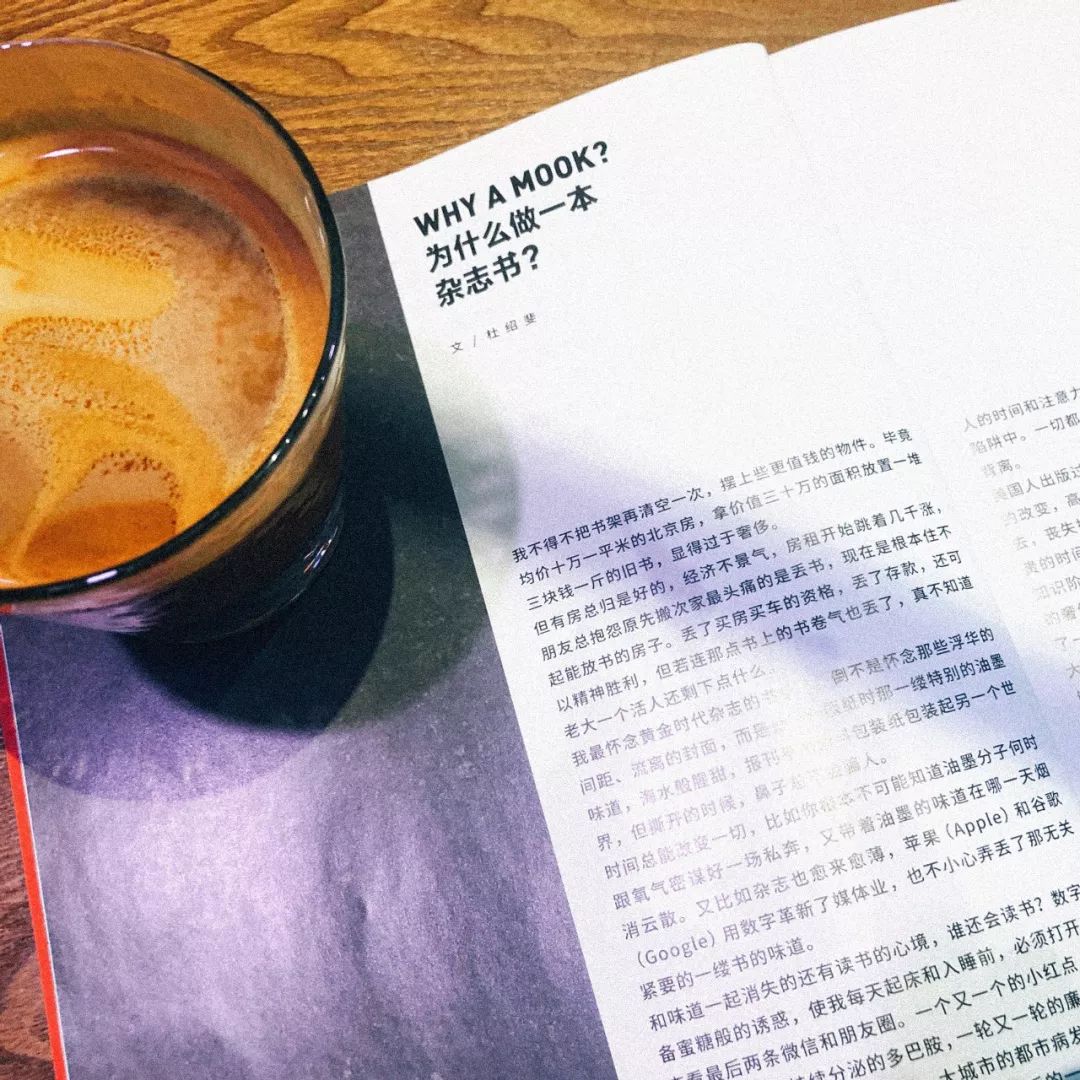 WHY A MOOK?
为什么做一本
杂志书?
文 / 杜绍斐
我不得不把书架再清空一次，摆上些更值钱的物件。毕竟
均价十万一平米的北京房，拿价值三十万的面积放置一堆
三块钱一斤的旧书，显得过于奢侈。
但有房总归是好的，经济不景气，房租开始跳着几千涨，
朋友总抱怨原先搬次家最头痛的是丢书，现在是根本住不
起能放书的房子。丢了买房买车的资格，丢了存款，还可
以精神胜利，但若连那点书上的书卷气也丢了，真不知道
老大一个活人还剩下点什么。
我最怀念黄金时代杂志的书 倒不是怀念那些浮华的
间距、流离的封面，而是 纸时那一缕特别的油墨
味道，海水般腥甜，报刊 包装纸包装起另一个世
界，但撕开的时候，鼻子总 骗人。
时间总能改变一切，比如你根本不可能知道油墨分子何时
跟氧气密谋好一场私奔，又带着油墨的味道在哪一天烟
消云散。又比如杂志也愈来愈薄，苹果（Apple）和谷歌
（Google）用数字革新了媒体业，也不小心弄丢了那无关
紧要的一缕书的味道。
和味道一起消失的还有读书的心境，谁还会读书？数字
备蜜糖般的诱惑，使我每天起床和入睡前，必须打开
看最后两条微信和朋友圈。一个又一个的小红点
续分泌的多巴胺，一轮又一轮的廉
大城市的都市病发
人的时间和注意力
陷阱中。一切都
背离。
美国人出版过
的改变，高
去，丧失
贵的时间
知识阶
的奢
了一
大